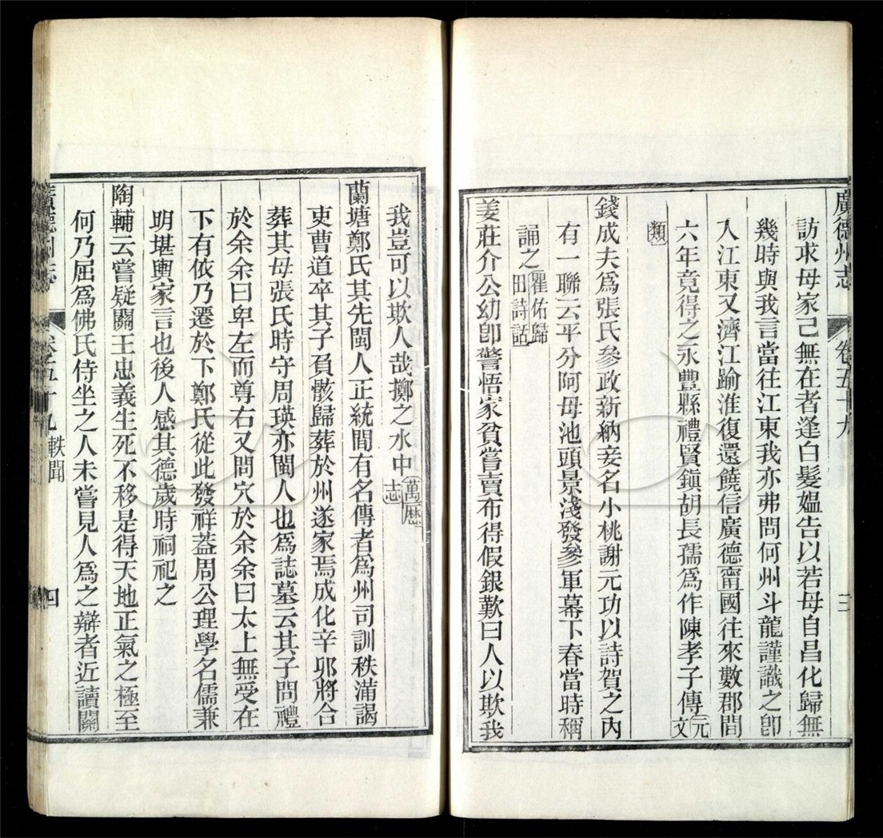 廣德州志 卷五十九
訪求母家已無在者逢白髮媼告以若母自昌化歸無
幾時與我言當往江東我亦弗問何州斗龍謹識之卽
入江東又濟江踰淮復還饒信廣德甯國往來數郡間
六年竟得之永豐縣禮賢鎮胡長孺爲作陳孝子傳元文
類
錢成夫爲張氏參政新納妾名小桃謝元功以詩賀之內
有一聯云平分阿母池頭景淺發參軍幕下春當時稱
誦之瞿佑歸田詩話
姜莊介公幼卽警悟家貧嘗賣布得假銀歎曰人以欺我
我豈可以欺人哉擲之水中萬歷志
蘭塘鄭氏其先閩人正統間有名傳者爲州司訓秩滿謁
吏曹道卒其子負骸歸葬於州遂家焉成化辛卯將合
葬其母張氏時守周瑛亦閩人也爲誌墓云其子問禮
於余余曰卑左而尊右又問穴於余余曰太上無受在
下有依乃遷於下鄭氏從此發祥蓋周公理學名儒兼
明堪輿家言也後人感其德歲時祠祀之
陶輔云嘗疑關王忠義生死不移是得天地正氣之極至
何乃屈爲佛氏侍坐之人未嘗見人爲之辯者近讀關
廣德州志 卷五十九 軼聞 四